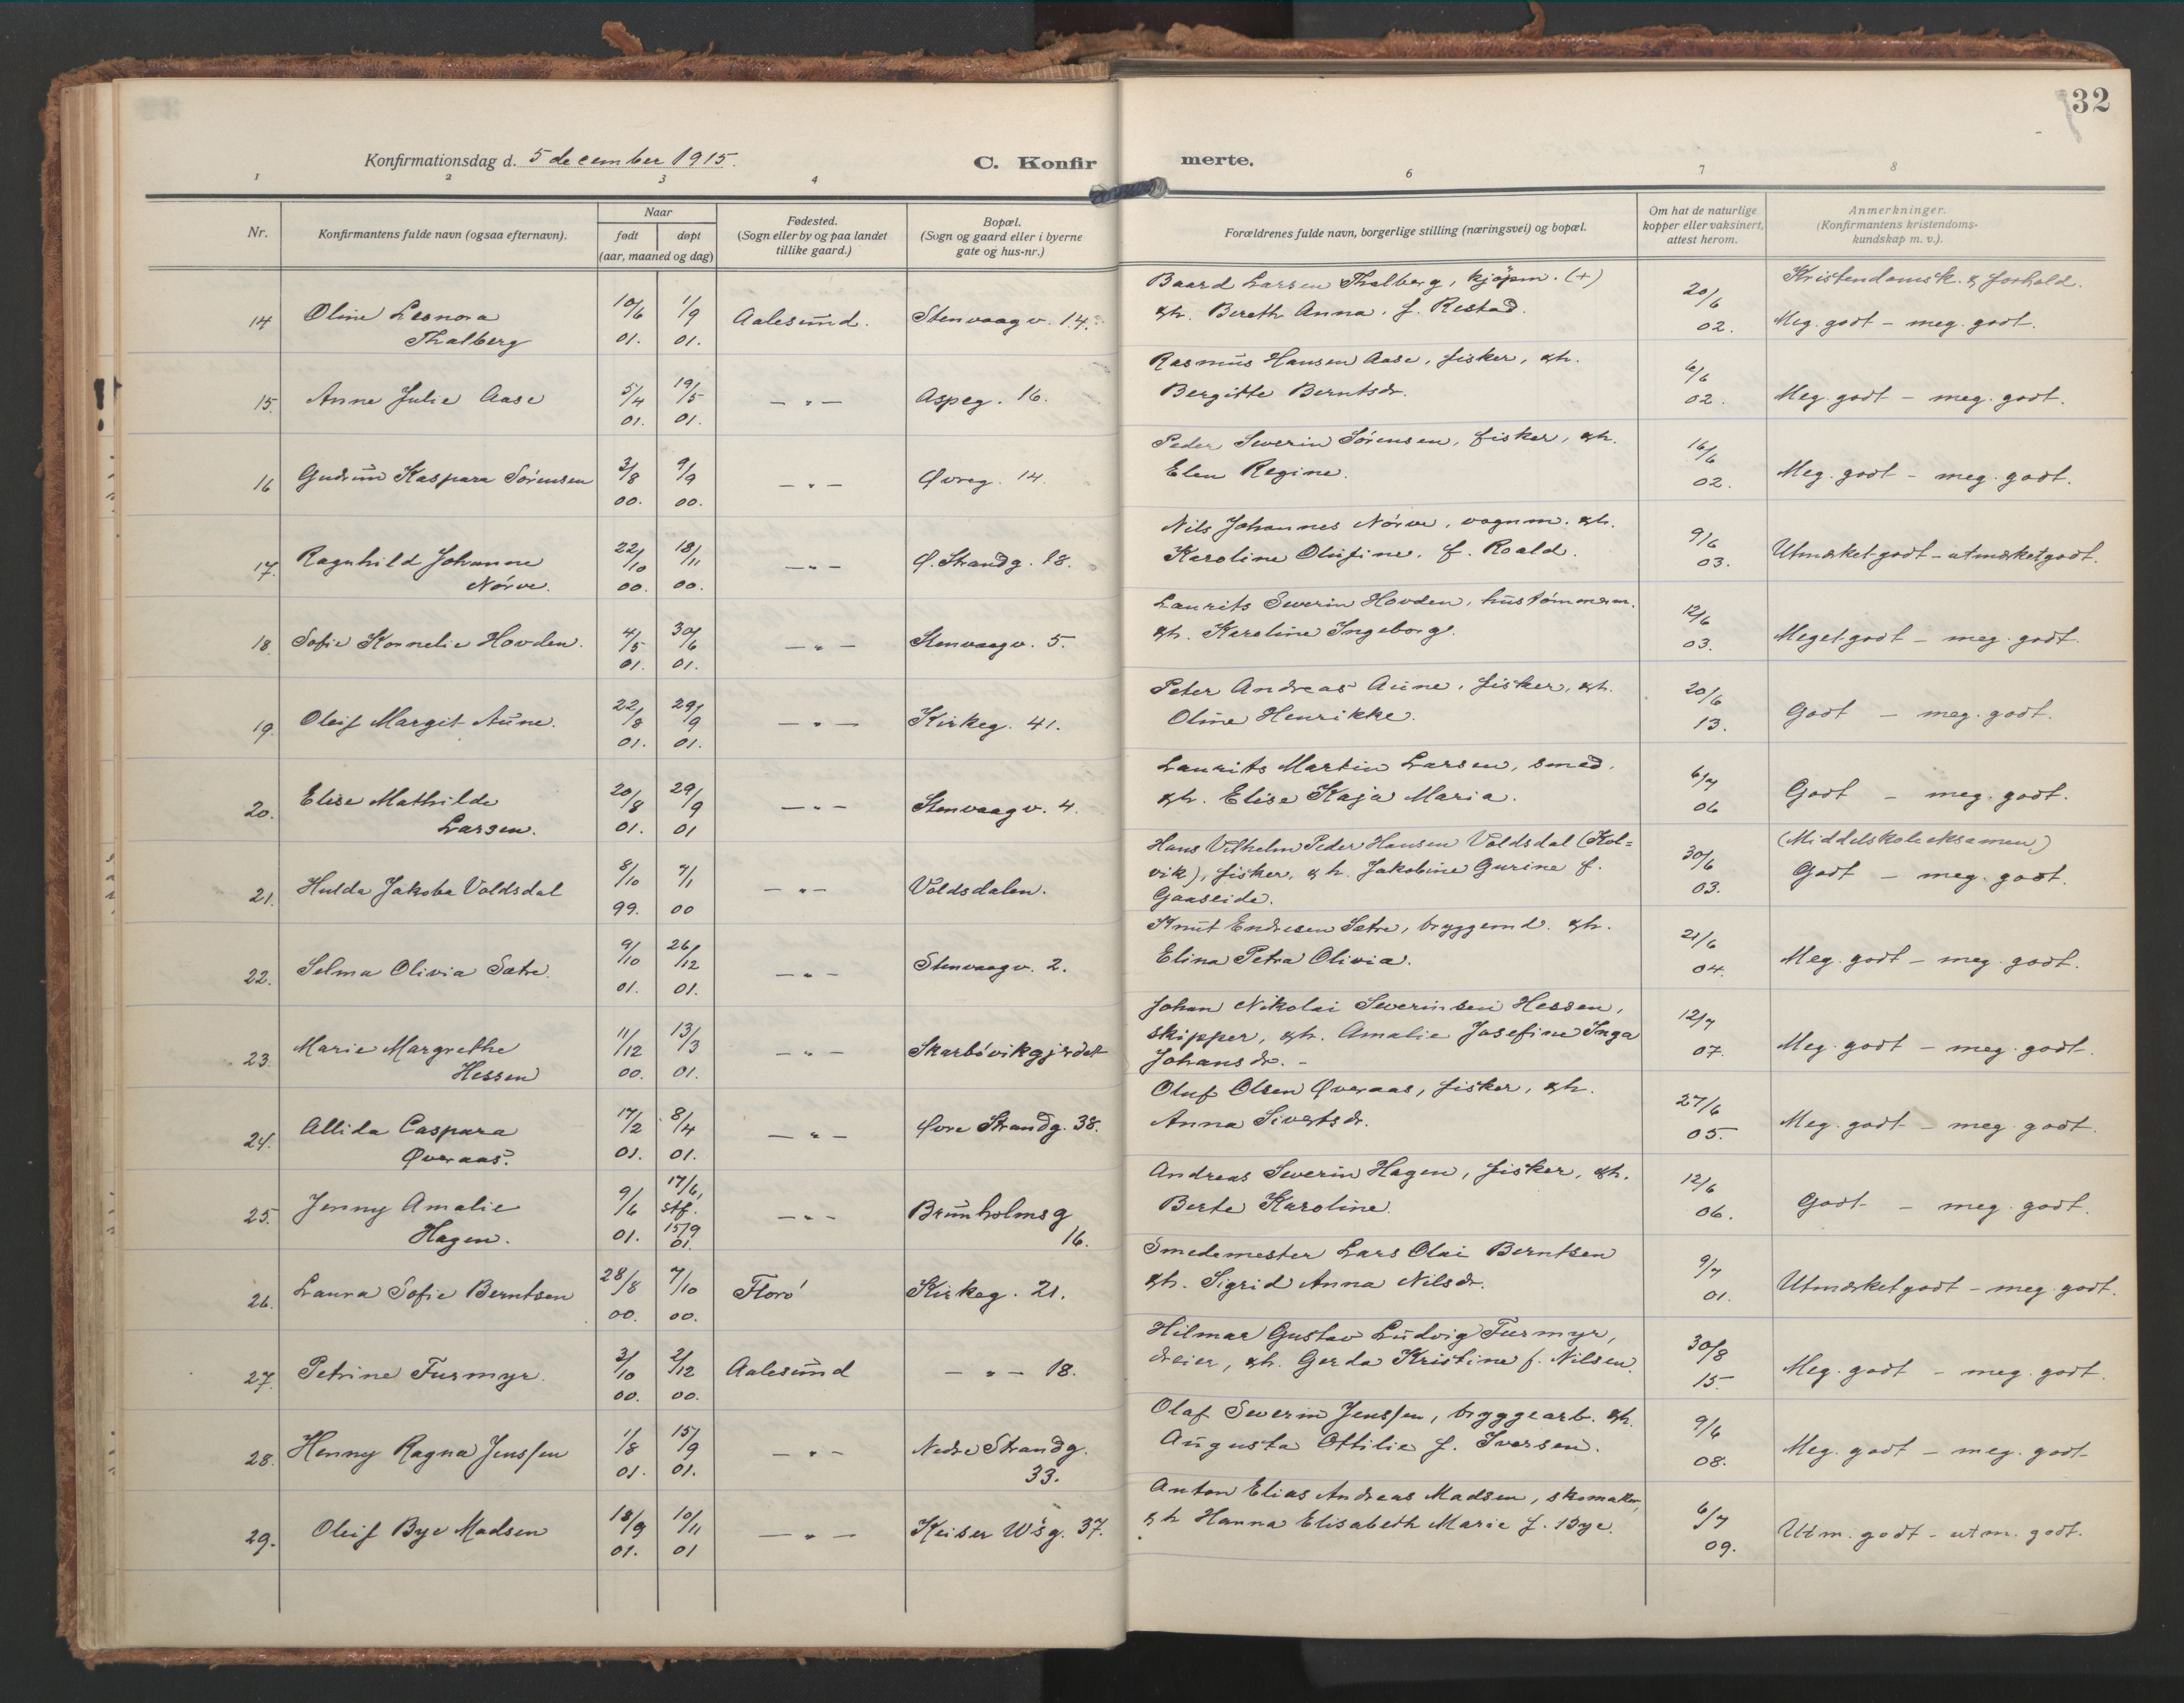 32
Konfirmationsdag d. 5 december 1915.
C. Konfir merte.
1 2 3 4 6 7 8
Nr.
Konfirmantens fulde navn (ogsaa efternavn).
Naar
født døpt
(aar, maaned og dag)
Fødested.
(Sogn eller by og paa landet
tillike gaard.)
Bopæl.
(Sogn og gaard eller i byerne
gate og hus-nr.)
Forældrenes fulde navn, borgerlige stilling (næringsvei) og bopæl.
Om hat de naturlige
kopper eller vaksinert,
attest herom.
Anmerkninger.
(Konfirmantens kristendoms-
kundskap m. v.).
Kristendomsk. & forhold.
14 Oline Leonora
Thalberg
10/6 01. 1/9 01. Aalesund. Stenvaagv. 14.
Baard Larsen Thalberg, kjöpm. (+)
& h. Bereth Anna, f. Restad.
20/6 02. Meg. godt - meg. godt.
15. Anne Julie Aase
5/4 01. 19/5 01. — " — Aspeg. 16.
Rasmus Hansen Aase, fisker, & h.
Bergitte Berntsdr.
6/6 02. Meg. godt - meg. godt.
16 Gudrun Kaspara Sörensen
3/8 00. 9/9 00. — " — Øvreg. 14.
Peder Severin Sörensen, fisker, & h.
Elen Regine.
16/6 02. Meg. godt - meg. godt.
17. Ragnhild Johanne
Nörve.
22/10 00. 18/11 00. — " — Ø. Strandg. 18.
Nils Johannes Nörve, vognm. & h.
Karoline Olufine, f. Roald.
9/6 03. Utmerket godt - utmerket godt.
18. Sofie Kornelie Hovden.
4/5 01. 30/6 01. — " — Stenvaagv. 5.
Laurits Severin Hovden, hustömmerm.
& h. Karoline Ingeborg.
12/6 03. Meget godt - meg. godt.
19. Oleif Margit Aune.
22/8 01. 29/9 01. — " — Kirkeg. 41.
Peter Andreas Aune, fisker, & h.
Oline Henrikke.
20/6 13. Godt - meg. godt.
20. Elise Mathilde
Larsen.
20/8 01. 29/9 01 — " — Stenvaagv. 4.
Laurits Martin Larsen, smed.
& h. Elise Kaja Maria.
6/7 06 Godt - meg. godt.
21. Hulda Jakoba Voldsdal
8/10 99. 7/1 00 — " — Voldsdalen.
Hans Vilhelm Peder Hansen Voldsdal (Kol=
vik), fisker, & h. Jakobine Gurine f.
Gaaseide.
30/6 03. (Middelskoleeksamen)
Godt - meg. godt.
22. Selma Olivia Sætre.
9/10 01. 26/12 01. — " — Stenvaagv. 2.
Knut Endresen Sætre, bryggemd. & h.
Elina Petra Olivia.
21/6 04. Meg. godt - meg. godt.
23. Marie Margrethe
Hessen
11/12 00. 13/3 01. — " — Skarbövikgjerdet
Johan Nikolai Severinsen Hessen,
skipper, & h. Amalie Josefine Inga
Johansdr. -
12/7 07. Meg. godt - meg. godt.
24. Allida Caspara
Øveraas.
17/2 01. 8/4 01. — " — Øvre Strandg. 38.
Oluf Olsen Øveraas, fisker, & h.
Anna Sivertsdr.
27/6 05. Meg. godt - meg. godt.
25. Jenny Amalie
Hagen.
9/6 01. 17/6, stf. 15/9 01. — " — Brunholmsg
16.
Andreas Severin Hagen, fisker, & h.
Berte Karoline.
12/6 06. Godt - meg. godt.
26. Laura Sofie Berntsen
28/8 00. 7/10 00. Florö Kirkeg. 21.
Smedemester Lars Olai Berntsen
& h. Sigrid Anna Nilsdr.
9/7 01. Utmerket godt - meg. godt.
27. Petrine Furmyr.
3/10 00. 2/12 00. Aalesund — " — 18.
Hilmar Gustav Ludvig Furmyr,
dreier, & h. Gerda Kristine f. Nilsen.
30/8 15. Meg. godt - meg. godt.
28. Henny Ragna Jenssen
1/8 01. 15/9 01. — " — Nedre Strandg.
33.
Olaf Severin Jenssen, bryggearb. & h.
Augusta Ottilie f. Iversen.
9/6 08. Meg. godt - meg. godt
29. Oleif Bye Madsen
18/9 01. 10/11 01 — " — Keiser W's g. 37.
Anton Elias Andreas Madsen, skomaker,
& h Hanna Elisabeth Marie f. Bye.
6/7 09. Utm. godt - utm. godt.